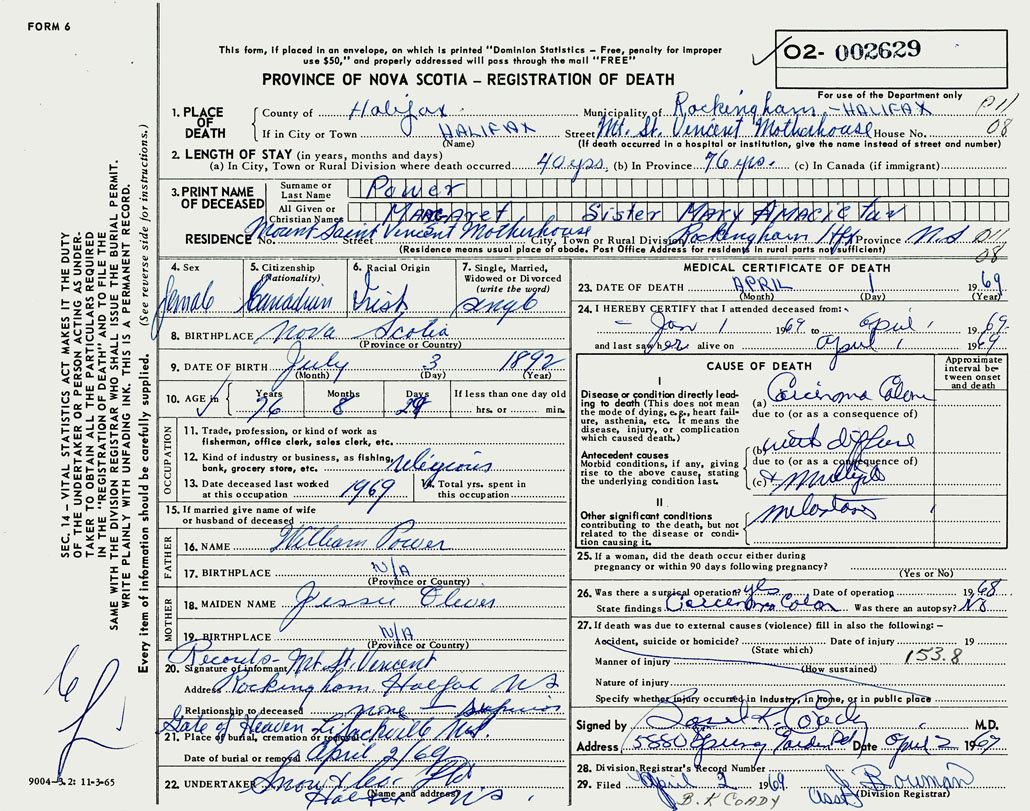 FORM 6
This form, if placed in an envelope, on which is printed "Dominion Statistics – Free, penalty for improper
use $50," and properly addressed will pass through the mail "FREE"
O2- 002629
For use of the Department only
PROVINCE OF NOVA SCOTIA – REGISTRATION OF DEATH
1. PLACE OF DEATH
County of Halifax Municipality of Rockingham – HALIFAX
If in City or Town HALIFAX Street Mt. St. Vincent Motherhouse House No.
(Name) (If death occurred in a hospital or institution, give the name instead of street and number)
D11
08
2. LENGTH OF STAY (in years, months and days)
(a) In City, Town or Rural Division where death occurred 40 yrs. (b) In Province 76 yrs. (c) In Canada (if immigrant)
3. PRINT NAME OF DECEASED
Surname or Last Name Power
All Given or Christian Names Margaret Sister Mary
RESIDENCE No. Mount Saint Vincent Motherhouse Street City, Town or Rural Division Rockingham Hfx Province N.S
(Residence means usual place of abode. Post Office Address for residents in rural parts not sufficient)
D11
08
4. Sex female
5. Citizenship (Nationality) Canadian
6. Racial Origin Irish
7. Single, Married, Widowed or Divorced (write the word) single
8. BIRTHPLACE Nova Scotia
(Province or Country)
9. DATE OF BIRTH July 3 1892
(Month) (Day) (Year)
10. AGE in Years 76 Months 8 Days If less than one day old hrs. or min.
OCCUPATION
11. Trade, profession, or kind of work as
fisherman, office clerk, sales clerk, etc.
12. Kind of industry or business, as fishing,
bank, grocery store, etc. religious
13. Date deceased last worked
at this occupation 1969
14. Total yrs. spent in
this occupation
15. If married give name of wife
or husband of deceased
FATHER
16. NAME William Power
17. BIRTHPLACE N/A
(Province or Country)
MOTHER
18. MAIDEN NAME Jessie Oliver
19. BIRTHPLACE N/A
(Province or Country)
20. Signature of informant Records – Mt. St. Vincent
Address Rockingham Halifax NS
Relationship to deceased none – Superior
21. Place of burial, cremation or removal Gate of Heaven
Date of burial or removal April 2/69
22. UNDERTAKER Snow
(Name and address) Halifax NS
MEDICAL CERTIFICATE OF DEATH
23. DATE OF DEATH APRIL 1 1969
(Month) (Day) (Year)
24. I HEREBY CERTIFY that I attended deceased from:
Jan 1 1969 to April 1 1969
and last saw her alive on April 1 1969
CAUSE OF DEATH
Approximate interval between onset and death
I
Disease or condition directly leading to death (This does not mean
the mode of dying, e.g., heart failure, asthenia, etc. It means the
disease, injury, or complication
which caused death.)
(a) Carcinoma Colon
due to (or as a consequence of)
Antecedent causes
Morbid conditions, if any, giving
rise to the above cause, stating
the underlying condition last.
(b) with diffuse
due to (or as a consequence of)
(c) + multiple
II
Other significant conditions
contributing to the death, but not
related to the disease or condition causing it.
25. If a woman, did the death occur either during
pregnancy or within 90 days following pregnancy?
(Yes or No)
26. Was there a surgical operation? yes Date of operation 1968
State findings Carcinoma Colon Was there an autopsy? No
27. If death was due to external causes (violence) fill in also the following:–
Accident, suicide or homicide? Date of injury 19
(State which)
Manner of injury 153.8
(How sustained)
Nature of injury
Specify whether injury occurred in industry, in home, or in public place
Signed by Coady M.D.
Address 5880 Spring Garden Rd Date April 2 1969
28. Division Registrar's Record Number
29. Filed April 2 1969 J. Bowman
(Division Registrar)
B.K COADY
SEC. 14 – VITAL STATISTICS ACT MAKES IT THE DUTY
OF THE UNDERTAKER OR PERSON ACTING AS UNDER-
TAKER TO OBTAIN ALL THE PARTICULARS REQUIRED
IN THE "REGISTRATION OF DEATH" AND TO FILE THE
SAME WITH THE DIVISION REGISTRAR WHO SHALL ISSUE THE BURIAL PERMIT.
WRITE PLAINLY WITH UNFADING INK. THIS IS A PERMANENT RECORD.
Every item of information should be carefully supplied. (See reverse side for instructions.)
9004-3.2: 11-3-65